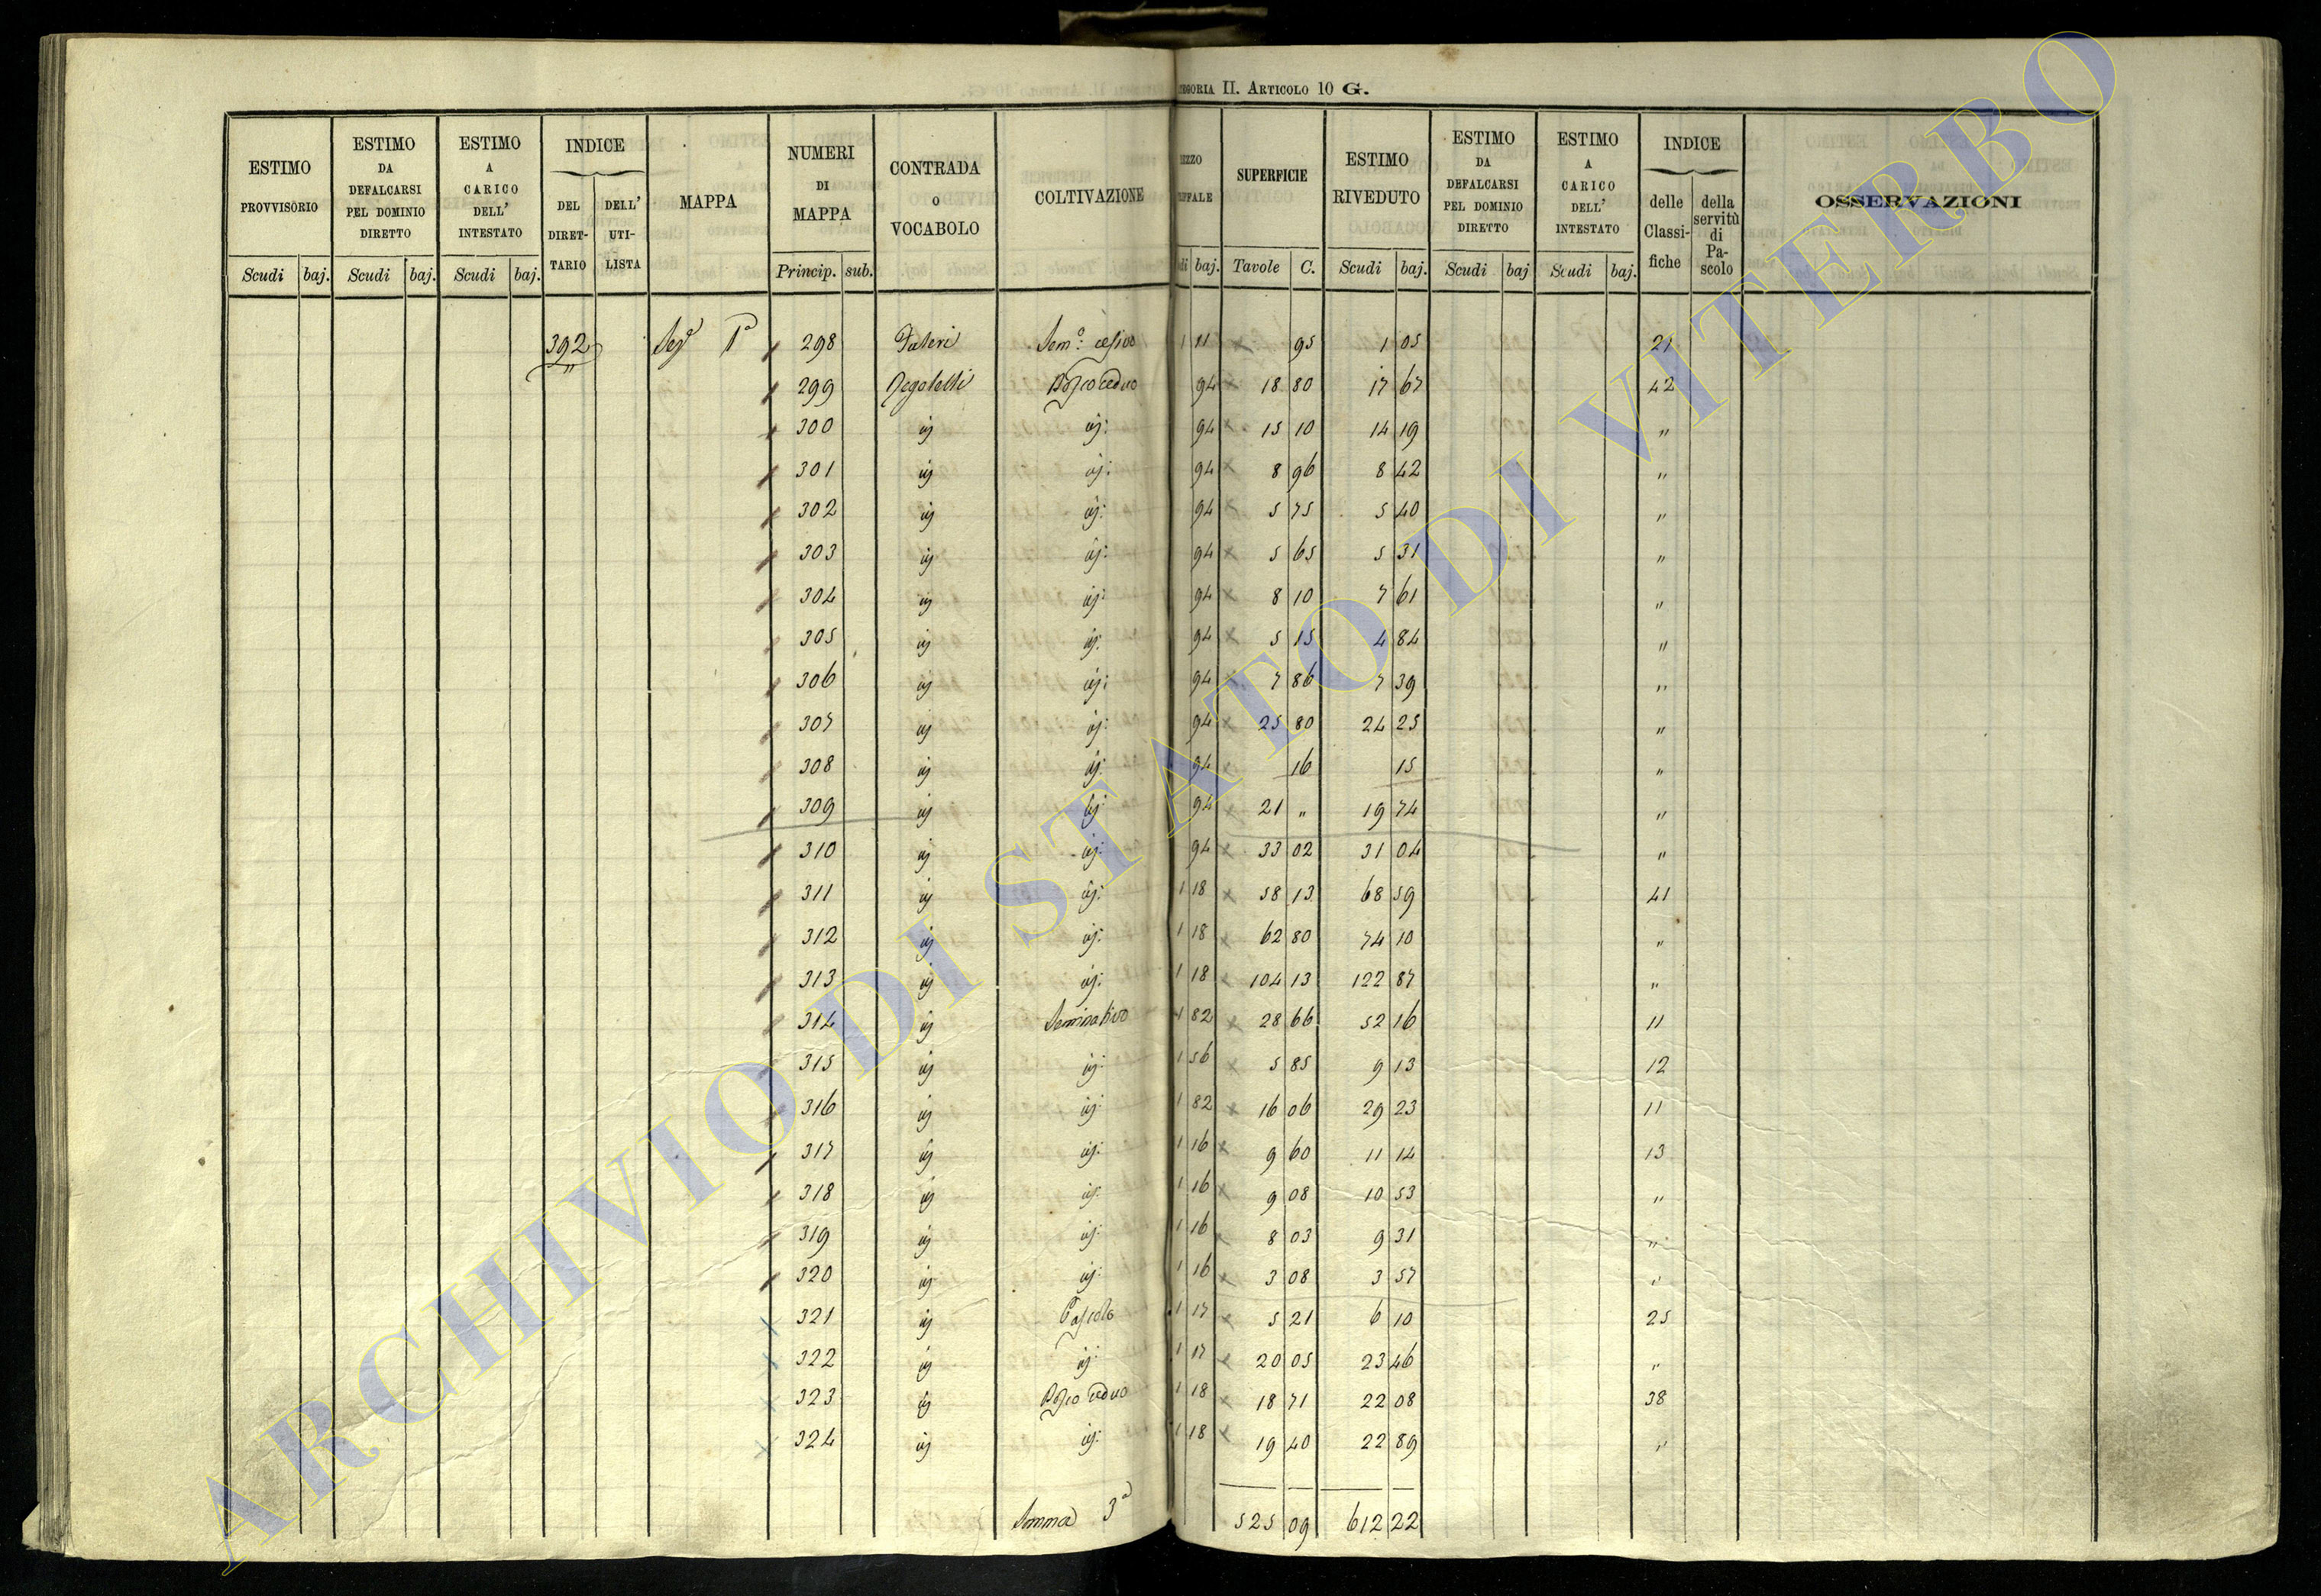 EGORIA II. ARTICOLO 10 G.
ESTIMO PROVVISORIO Scudi baj.
ESTIMO DA DEFALCARSI PEL DOMINIO DIRETTO Scudi baj.
ESTIMO A CARICO DELL' INTESTATO Scudi baj.
INDICE DEL DIRET-TARIO DELL' UTI-LISTA
MAPPA
NUMERI DI MAPPA Princip. sub.
CONTRADA o VOCABOLO
COLTIVAZIONE
EZZO FFALE di baj.
SUPERFICIE Tavole C.
ESTIMO RIVEDUTO Scudi baj.
ESTIMO DA DEFALCARSI PEL DOMINIO DIRETTO Scudi baj
ESTIMO A CARICO DELL' INTESTATO Scudi baj.
INDICE delle Classi-fiche della servitù di Pa-scolo
OSSERVAZIONI
392 1ª 298 Faleri Sem.º 1 11 95 1 05 21
299 Bosco ceduo 94 18 80 17 67 42
300 ij ij: 94 15 10 14 19 "
301 ij ij: 94 8 96 8 42 "
302 ij ij: 94 5 75 5 40 "
303 ij ij: 94 5 65 5 31 "
304 ij ij: 94 8 10 7 61 "
305 ij ij: 94 5 15 4 84 "
306 ij ij: 94 7 86 7 39 "
307 ij ij: 94 25 80 24 25 "
308 ij ij: 94 16 15 "
309 ij ij 94 21 " 19 74 "
310 ij ij: 94 33 02 31 04 "
311 ij ij: 1 18 58 13 68 59 41
312 ij ij: 1 18 62 80 74 10 "
313 ij ij: 1 18 104 13 122 87 "
314 ij Seminativo 1 82 28 66 52 16 11
315 ij ij: 1 56 5 85 9 13 12
316 ij ij: 1 82 16 06 29 23 11
317 ij ij: 1 16 9 60 11 14 13
318 ij ij: 1 16 9 08 10 53 "
319 ij ij: 1 16 8 03 9 31 "
320 ij ij: 1 16 3 08 3 57 "
321 ij Pascolo 1 17 5 21 6 10 25
322 ij ij: 1 17 20 05 23 46 "
323 ij Bosco ceduo 1 18 18 71 22 08 38
324 ij ij: 1 18 19 40 22 89 "
Somma 3ª 525 09 612 22
ARCHIVIO DI STATO DI VITERBO